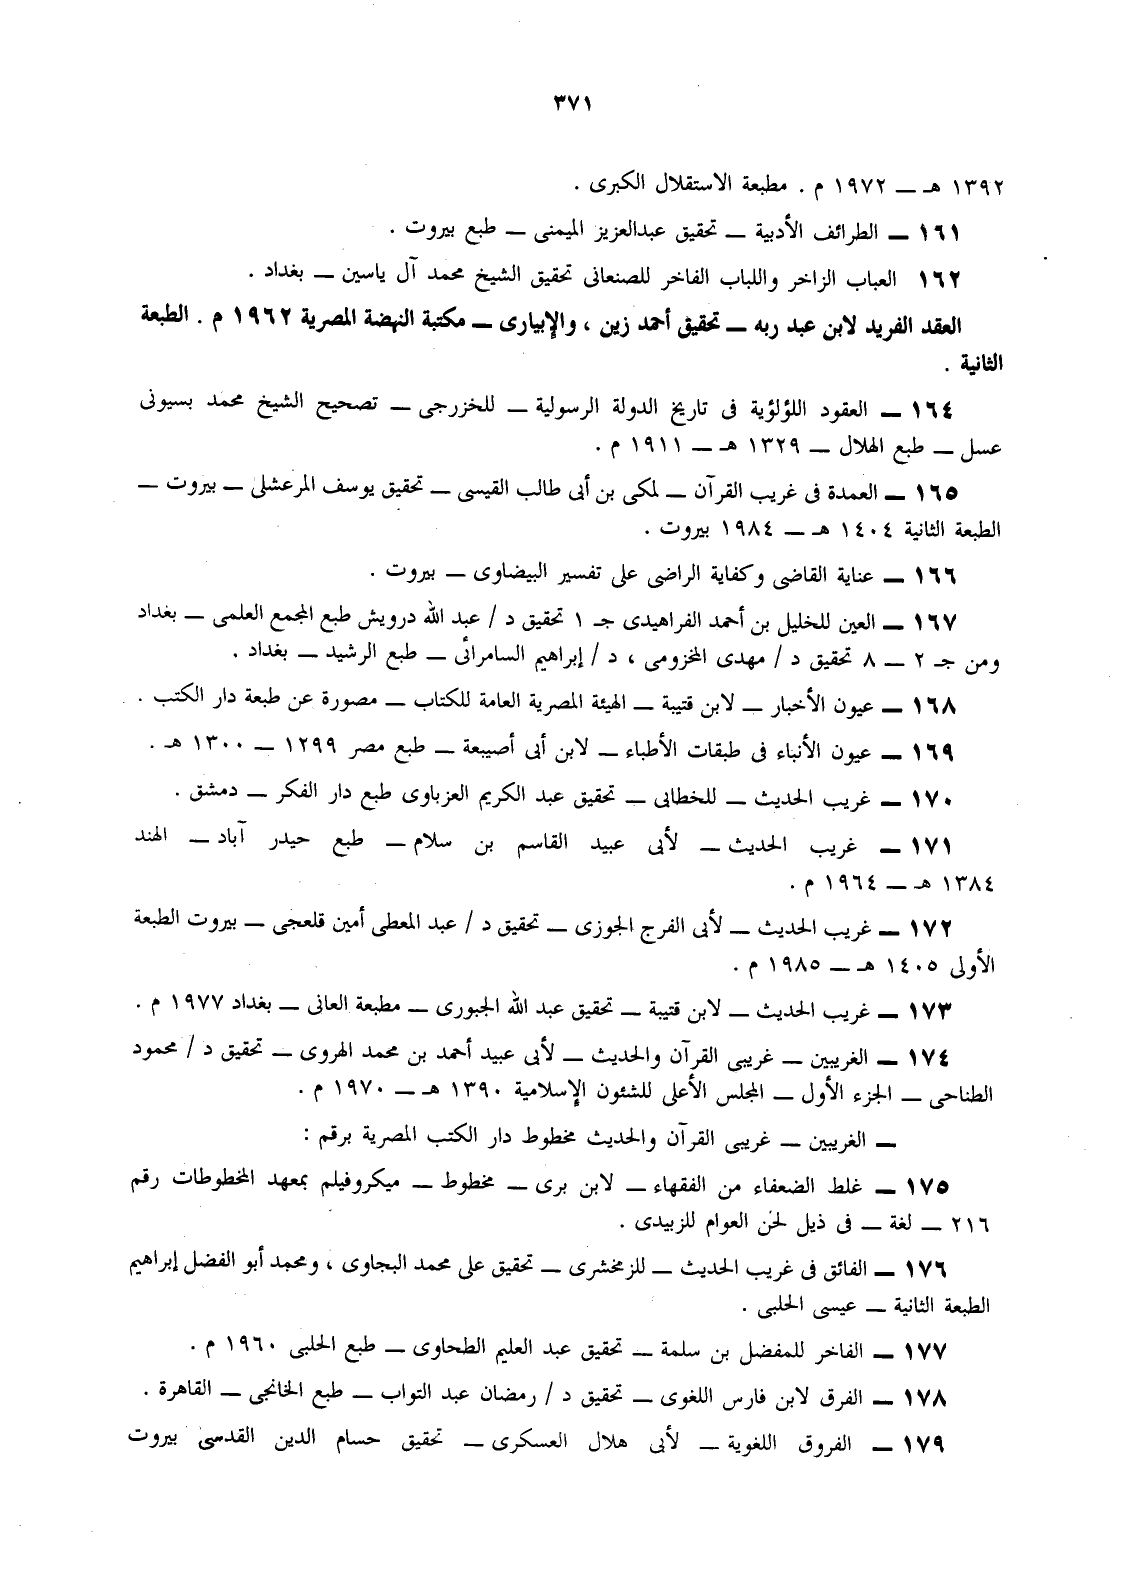 ٣٧١
١٣٩٢ هـ ــ ١٩٧٢ م . مطبعة الاستقلال الكبرى .
١٦١ ــ الطرائف الأدبية ــ تحقيق عبدالعزيز الميمنى ــ طبع بيروت .
١٦٢ العباب الزاخر واللباب الفاخر للصنعانى تحقيق الشيخ محمد آل ياسين ــ بغداد .
العقد الفريد لابن عبد ربه ــ تحقيق أحمد زين ، والإبيارى ــ مكتبة النهضة المصرية ١٩٦٢ م . الطبعة
الثانية .
١٦٤ ــ العقود اللؤلؤية فى تاريخ الدولة الرسولية ــ للخزرجى ــ تصحيح الشيخ محمد بسيونى
عسل ــ طبع الهلال ــ ١٣٢٩ هـ ــ ١٩١١ م .
١٦٥ ــ العمدة فى غريب القرآن ــ لمكى بن أبى طالب القيسى ــ تحقيق يوسف المرعشلى ــ بيروت ــ
الطبعة الثانية ١٤٠٤ هـ ــ ١٩٨٤ بيروت .
١٦٦ ــ عناية القاضى وكفاية الراضى على تفسير البيضاوى ــ بيروت .
١٦٧ ــ العين للخليل بن أحمد الفراهيدى جـ ١ تحقيق د / عبد الله درويش طبع المجمع العلمى ــ بغداد
ومن جـ ٢ ــ ٨ تحقيق د / مهدى المخزومى ، د / إبراهيم السامرائى ــ طبع الرشيد ــ بغداد .
١٦٨ ــ عيون الأخبار ــ لابن قتيبة ــ الهيئة المصرية العامة للكتاب ــ مصورة عن طبعة دار الكتب .
١٦٩ ــ عيون الأنباء فى طبقات الأطباء ــ لابن أبى أصيبعة ــ طبع مصر ١٢٩٩ ــ ١٣٠٠ هـ .
١٧٠ ــ غريب الحديث ــ للخطابى ــ تحقيق عبد الكريم العزباوى طبع دار الفكر ــ دمشق .
١٧١ ــ غريب الحديث ــ لأبى عبيد القاسم بن سلام ــ طبع حيدر آباد ــ الهند
١٣٨٤ هـ ــ ١٩٦٤ م .
١٧٢ ــ غريب الحديث ــ لأبى الفرج الجوزى ــ تحقيق د / عبد المعطى أمين قلعجى ــ بيروت الطبعة
الأولى ١٤٠٥ هـ ــ ١٩٨٥ م .
١٧٣ ــ غريب الحديث ــ لابن قتيبة ــ تحقيق عبد الله الجبورى ــ مطبعة العانى ــ بغداد ١٩٧٧ م .
١٧٤ ــ الغريبين ــ غريبى القرآن والحديث ــ لأبى عبيد أحمد بن محمد الهروى ــ تحقيق د / محمود
الطناحى ــ الجزء الأول ــ المجلس الأعلى للشئون الإسلامية ١٣٩٠ هـ ــ ١٩٧٠ م .
ــ الغريبين ــ غريبى القرآن والحديث مخطوط دار الكتب المصرية برقم :
١٧٥ ــ غلط الضعفاء من الفقهاء ــ لابن برى ــ مخطوط ــ ميكروفيلم بمعهد المخطوطات رقم
٢١٦ ــ لغة ــ فى ذيل لحن العوام للزبيدى .
١٧٦ ــ الفائق فى غريب الحديث ــ للزمخشرى ــ تحقيق على محمد البجاوى ، ومحمد أبو الفضل إبراهيم
الطبعة الثانية ــ عيسى الحلبى .
١٧٧ ــ الفاخر للمفضل بن سلمة ــ تحقيق عبد العليم الطحاوى ــ طبع الحلبى ١٩٦٠ م .
١٧٨ ــ الفرق لابن فارس اللغوى ــ تحقيق د / رمضان عبد التواب ــ طبع الخانجى ــ القاهرة .
١٧٩ ــ الفروق اللغوية ــ لأبى هلال العسكرى ــ تحقيق حسام الدين القدسى بيروت